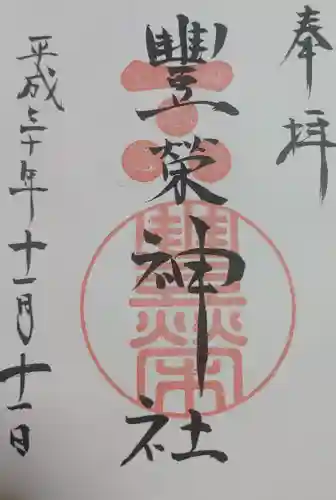 奉拝
豐榮神社
平成三十年十一月十一日
豊栄